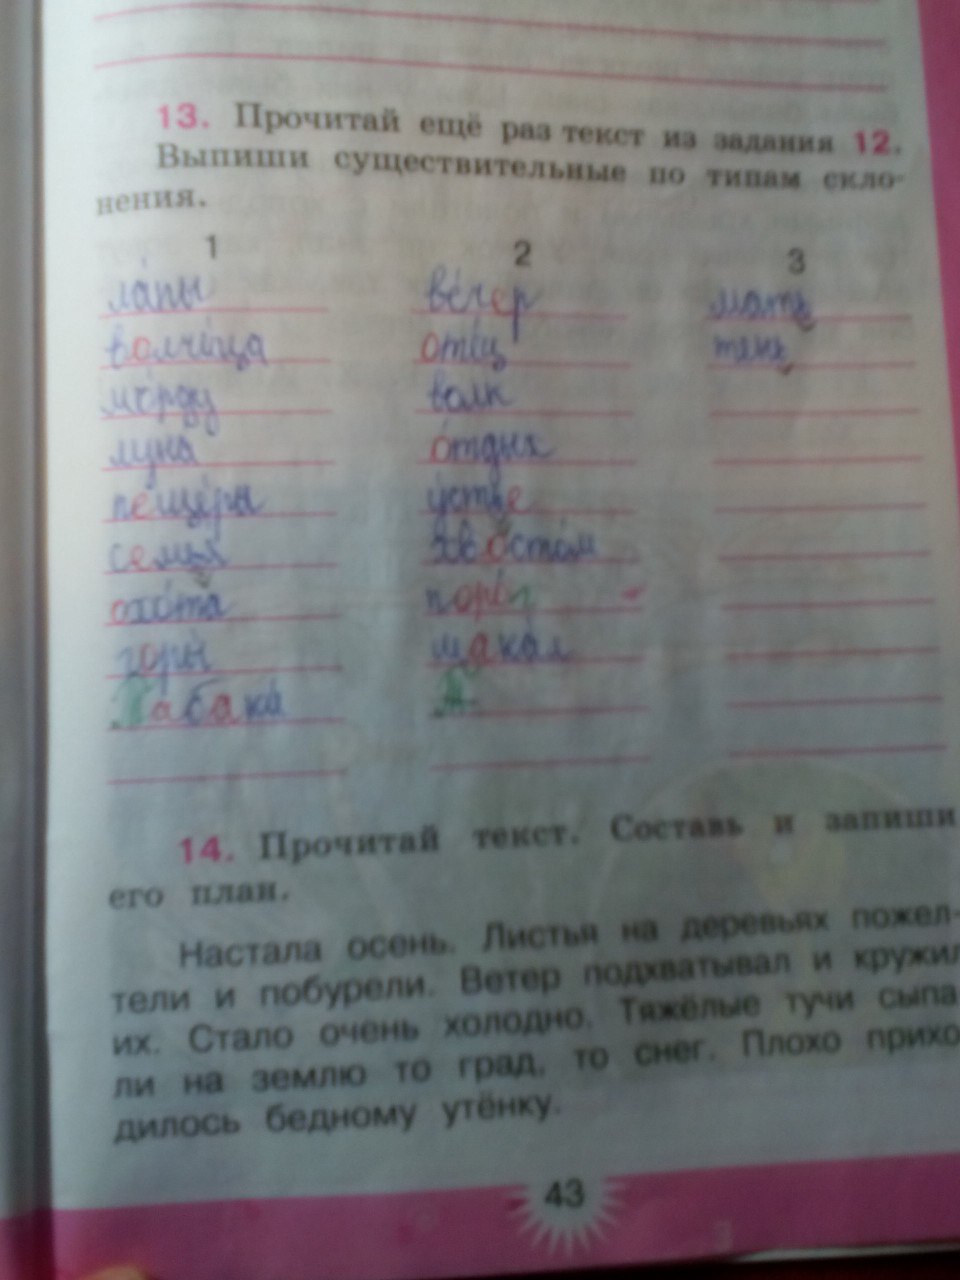 13. Прочитай ещё раз текст из задания 12.
Выпиши существительные по типам скло-
нения.
1 2 3
лапы вечер мать
волчица отец тень
морду волк
луна отдых
пещеры устье
семья хвостом
охота
горы шакал
Табаки
14. Прочитай текст. Составь и запиши
его план.
Настала осень. Листья на деревьях пожел-
тели и побурели. Ветер подхватывал и кружил
их. Стало очень холодно. Тяжёлые тучи сыпа
ли на землю то град, то снег. Плохо прихо
дилось бедному утёнку.
43